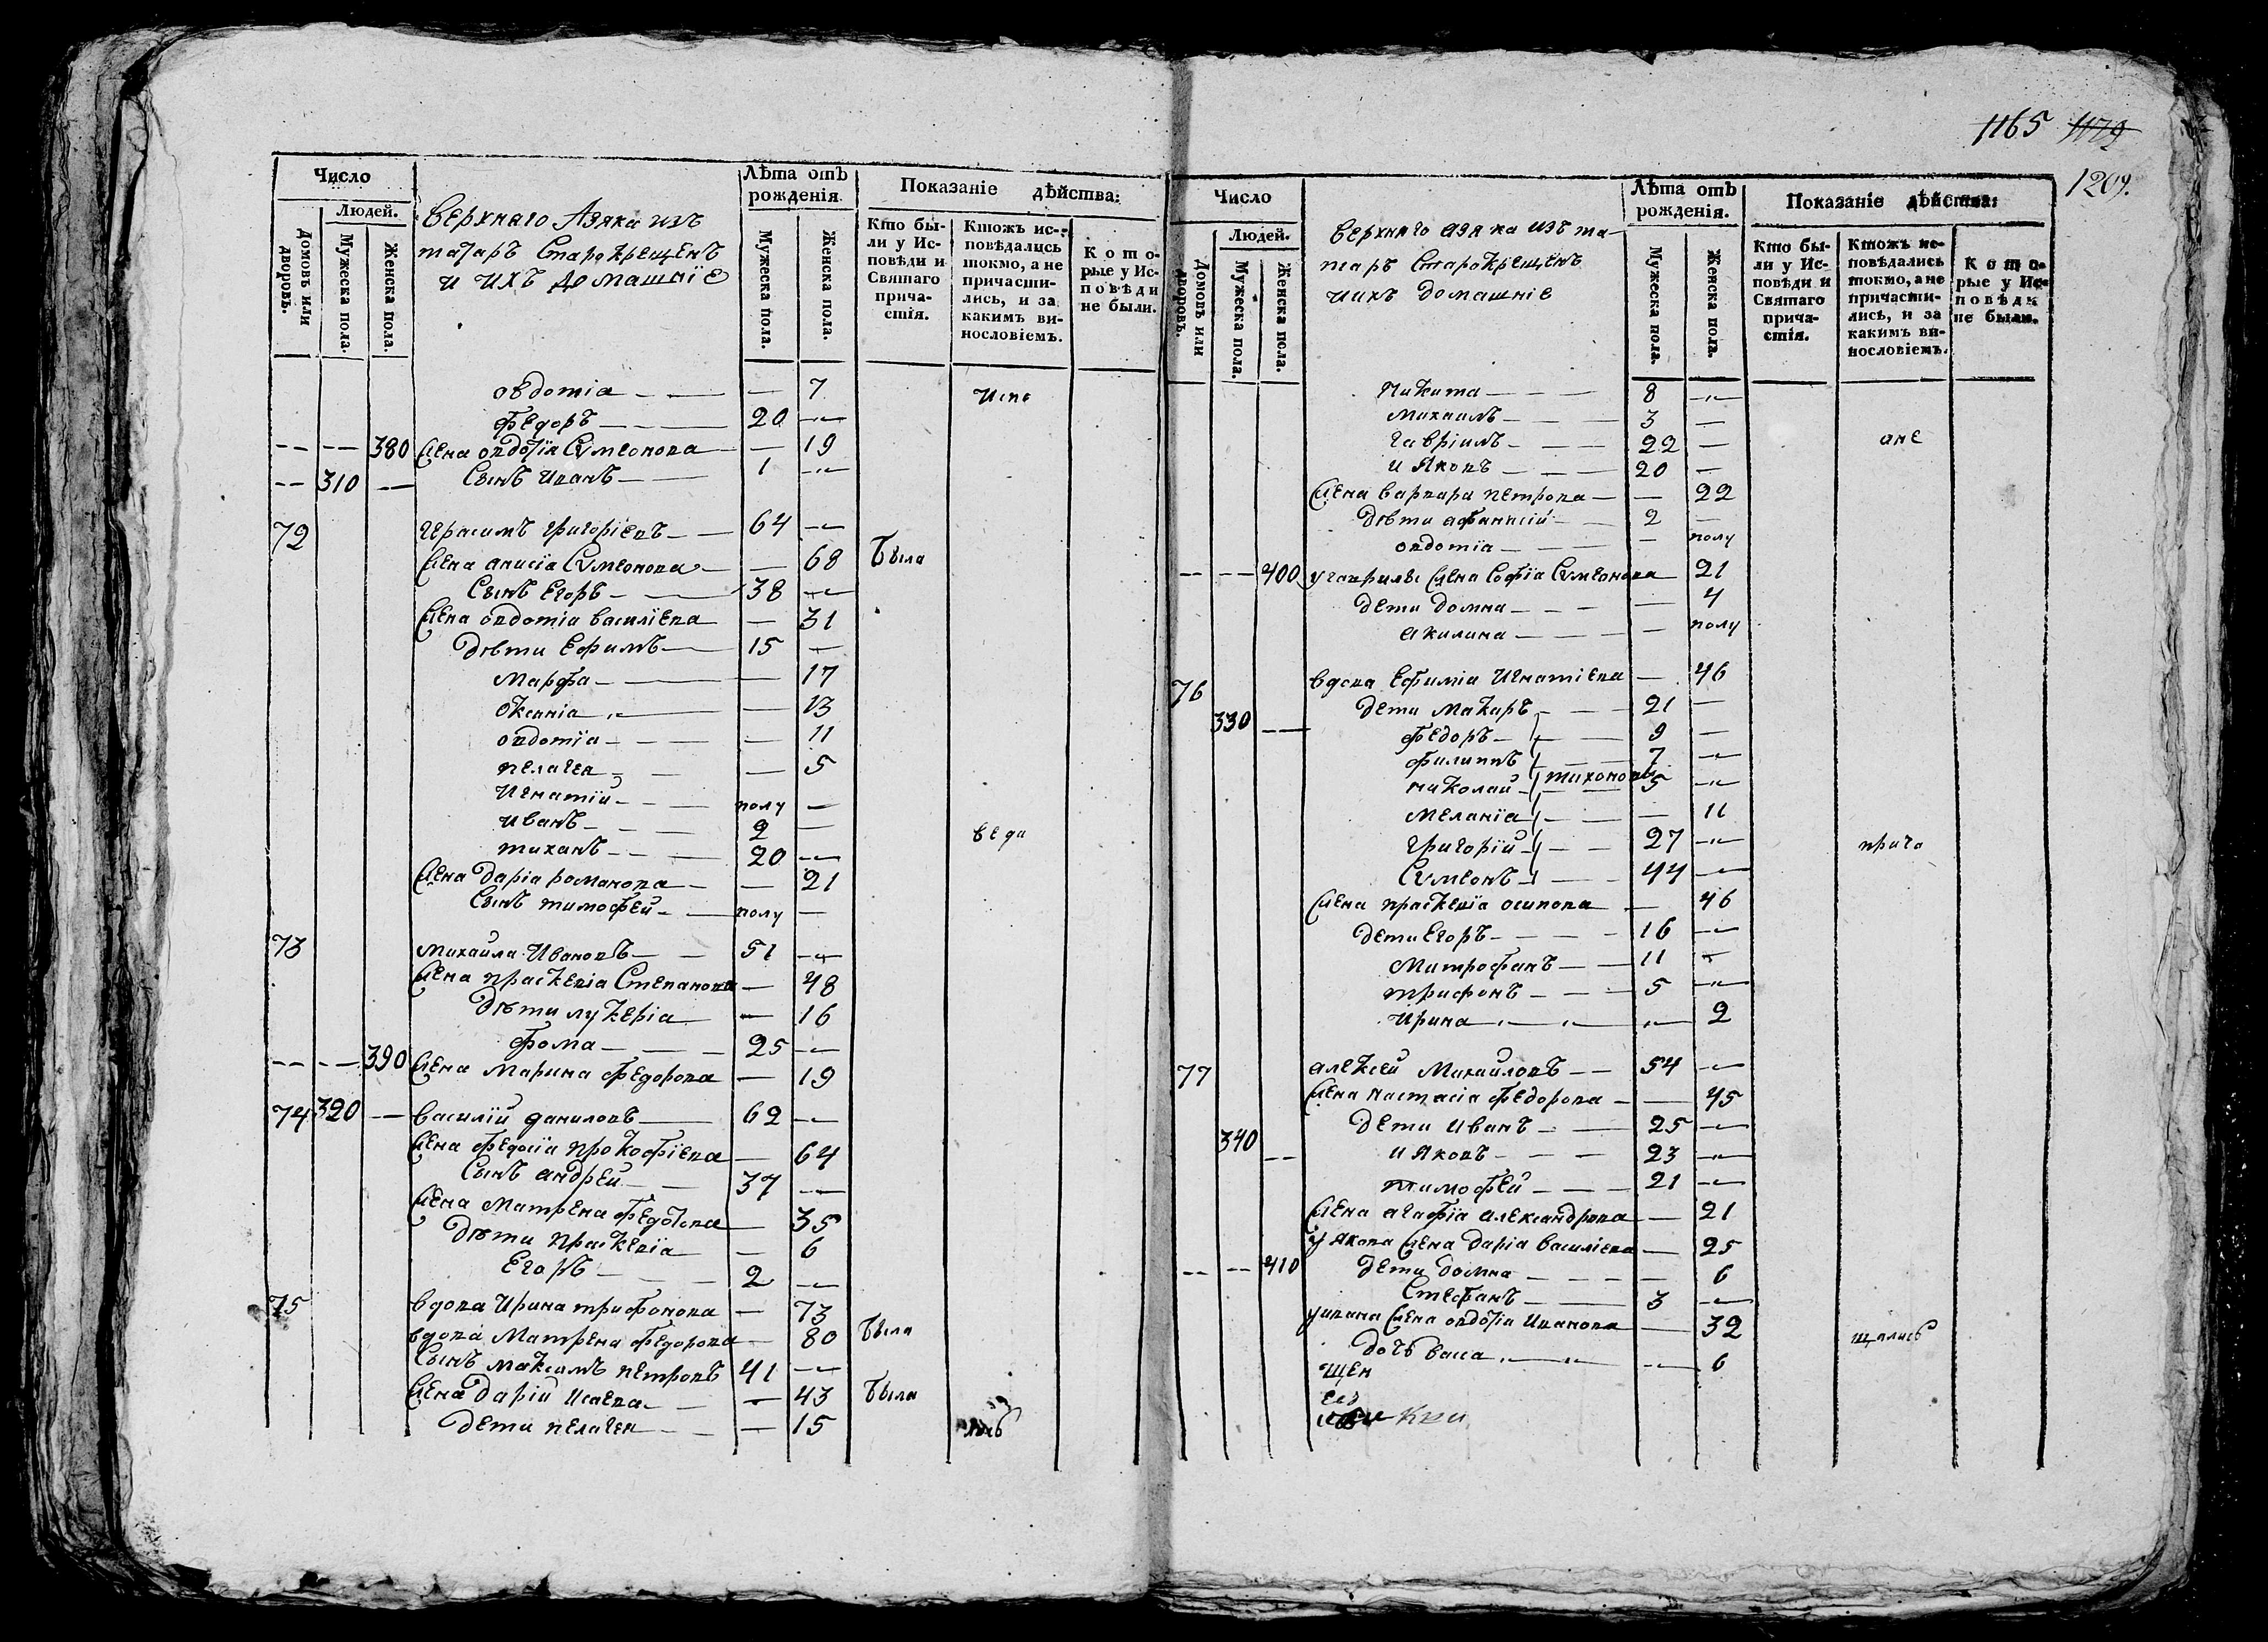 1165 1179
1209.
Число
Людей.
Домовъ или дворовъ.
Мужеска пола.
Женска пола.
Верхняго Азяка изъ
татаръ Старокрещенъ
и ихъ домашніе
Лѣта отъ рожденія.
Мужеска пола.
Женска пола.
Показаніе дѣйства:
Кто бы-
ли у Ис-
повѣди и
Святаго
прича-
стія.
Ктожъ ис-
повѣдались
токмо, а не
причасти-
лись, и за
какимъ ви-
нословіемъ.
Кото-
рые у Ис-
повѣди
не были.
овдотіа — 7 испо
Федоръ 20 —
— — 380 жена овдотїя Сѵмеонова — 19
— 310 — Сынъ Иванъ 1 —
72 Герасимъ Григоріевъ 64 —
жена анисїа Сѵмеонова — 68 Была
Сынъ Егоръ 38 —
жена овдотіа василїева — 31
Дѣти Ефимъ 15 —
Марфа — 17
Оксаніа — 13
овдотїа — 11
пелагея — 5
Игнатїй полу —
Иванъ 2 — веда
тиханъ 20 —
жена Даріа романова — 21
Сынъ тимофей полу —
73 Михаила Ивановъ 51 —
жена праскевіа Степанова — 48
Дѣти лукеріа — 16
фома 25 —
— — 390 жена Марина федорова — 19
74 320 — василїй даниловъ 62 —
жена федосїа прокофїева — 64
Сынъ андрей 37 —
жена Матрена федотова — 35
Дѣти праскевїа — 6
Егоръ 2 —
75 вдова Ирина трифонова — 73
вдова Матрена федорова — 80 была
Сынъ максимъ петровъ 41 —
жена Дарїи исаева — 43 была
дети пелагея — 15 лись
Число
Людей.
Домовъ или дворовъ.
Мужеска пола.
Женска пола.
верхняго азяка изъ та-
таръ Старокрещенъ
иихъ домашніе
Лѣта отъ рожденія.
Мужеска пола.
Женска пола.
Показаніе дѣйства:
Кто бы-
ли у Ис-
повѣди и
Святаго
прича-
стія.
Ктожъ ис-
повѣдались
токмо, а не
причасти-
лись, и за
какимъ ви-
нословіемъ.
Кото-
рые у Ис-
повѣди
не были.
Никита 8 —
Михаилъ 3 —
гавріилъ 22 — ане
и Яковъ 20 —
жена варвара петрова — 22
дѣти афанасїй 2 —
овдотїа — полу
— — 400 угаврилы жена Софїа Сѵмеонова — 21
дети домна — 4
акилина — полу
76 вдова Ефиміа Игнатїева — 46
дети Макаръ 21 —
330 — федоръ 9 —
филиппъ 7 —
николай тихоновы 5 —
меланїа — 11
григорїй 27 — прича
Сѵмеонъ 44 —
жена праскевїа осипова — 46
дети Егоръ 16 —
Митрофанъ 11 —
трифонъ 5 —
Ирина — 2
77 алексей Михайловъ 54 —
жена настасіа федорова — 45
дети Иванъ 25 —
340 — и Яковъ 23 —
тимофей 21 —
жена агафїа александрова — 21
у Якова жена даріа василіева — 25
— — 410 дети домна — 6
Стефанъ 3 —
уивана жена овдотїа Иванова — 32
дочь васса — 6 щались
щен